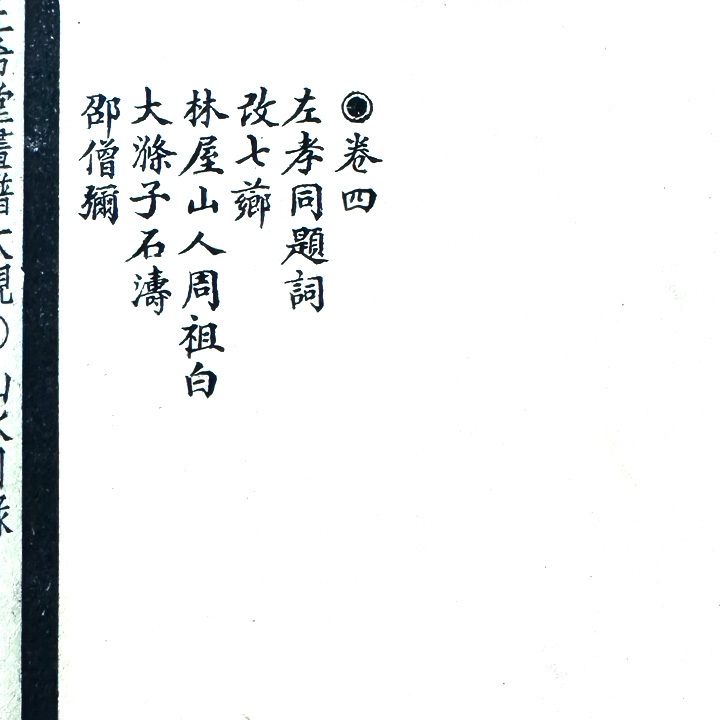 ◉卷四
左孝同題詞
改七薌
林屋山人周祖白
大滌子石濤
邵僧彌
畫譜大觀○山水目錄